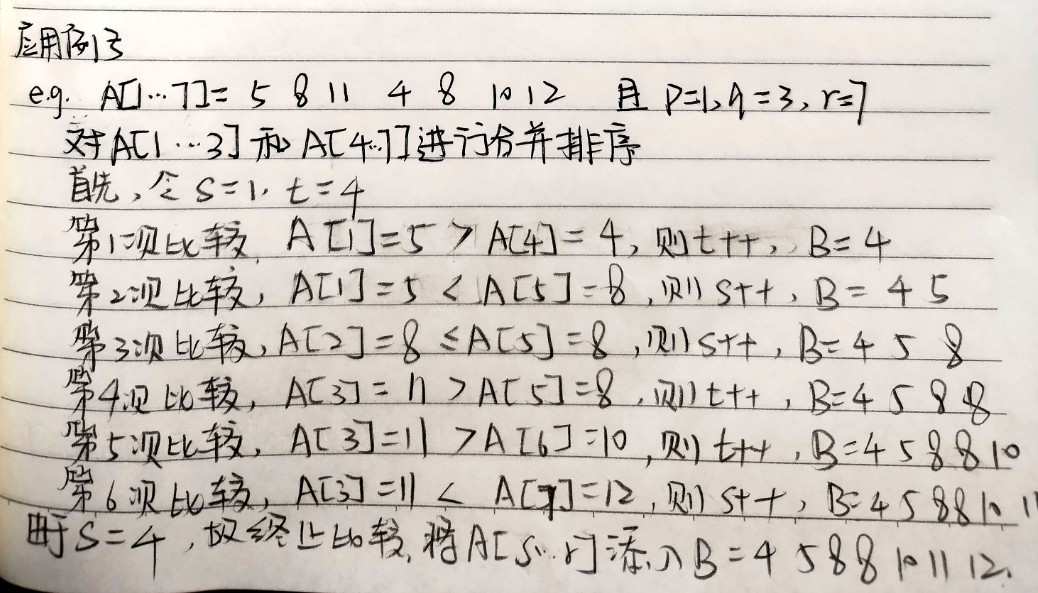 应用例子
e.g. A[1…7]= 5 8 11 4 8 10 12 且 p=1,q=3,r=7
对A[1…3]和A[4..7]进行分并排序
首先,令 s=1. t=4
第1次比较, A[1]=5 > A[4]=4, 则t++, B=4
第2次比较, A[1]=5 < A[5]=8, 则 s++, B= 4 5
第3次比较, A[2]=8 ≤ A[5]=8, 则 s++, B=4 5 8
第4次比较, A[3]= 11 > A[5]=8, 则 t++, B=4 5 8 8
第5次比较, A[3]=11 > A[6]=10, 则 t++, B=4 5 8 8 10
第6次比较, A[3]=11 < A[7]=12, 则 s++, B=4 5 8 8 10 11
由于 s=4, 故终止比较, 将A[5..r]添入 B=4 5 8 8 10 11 12.